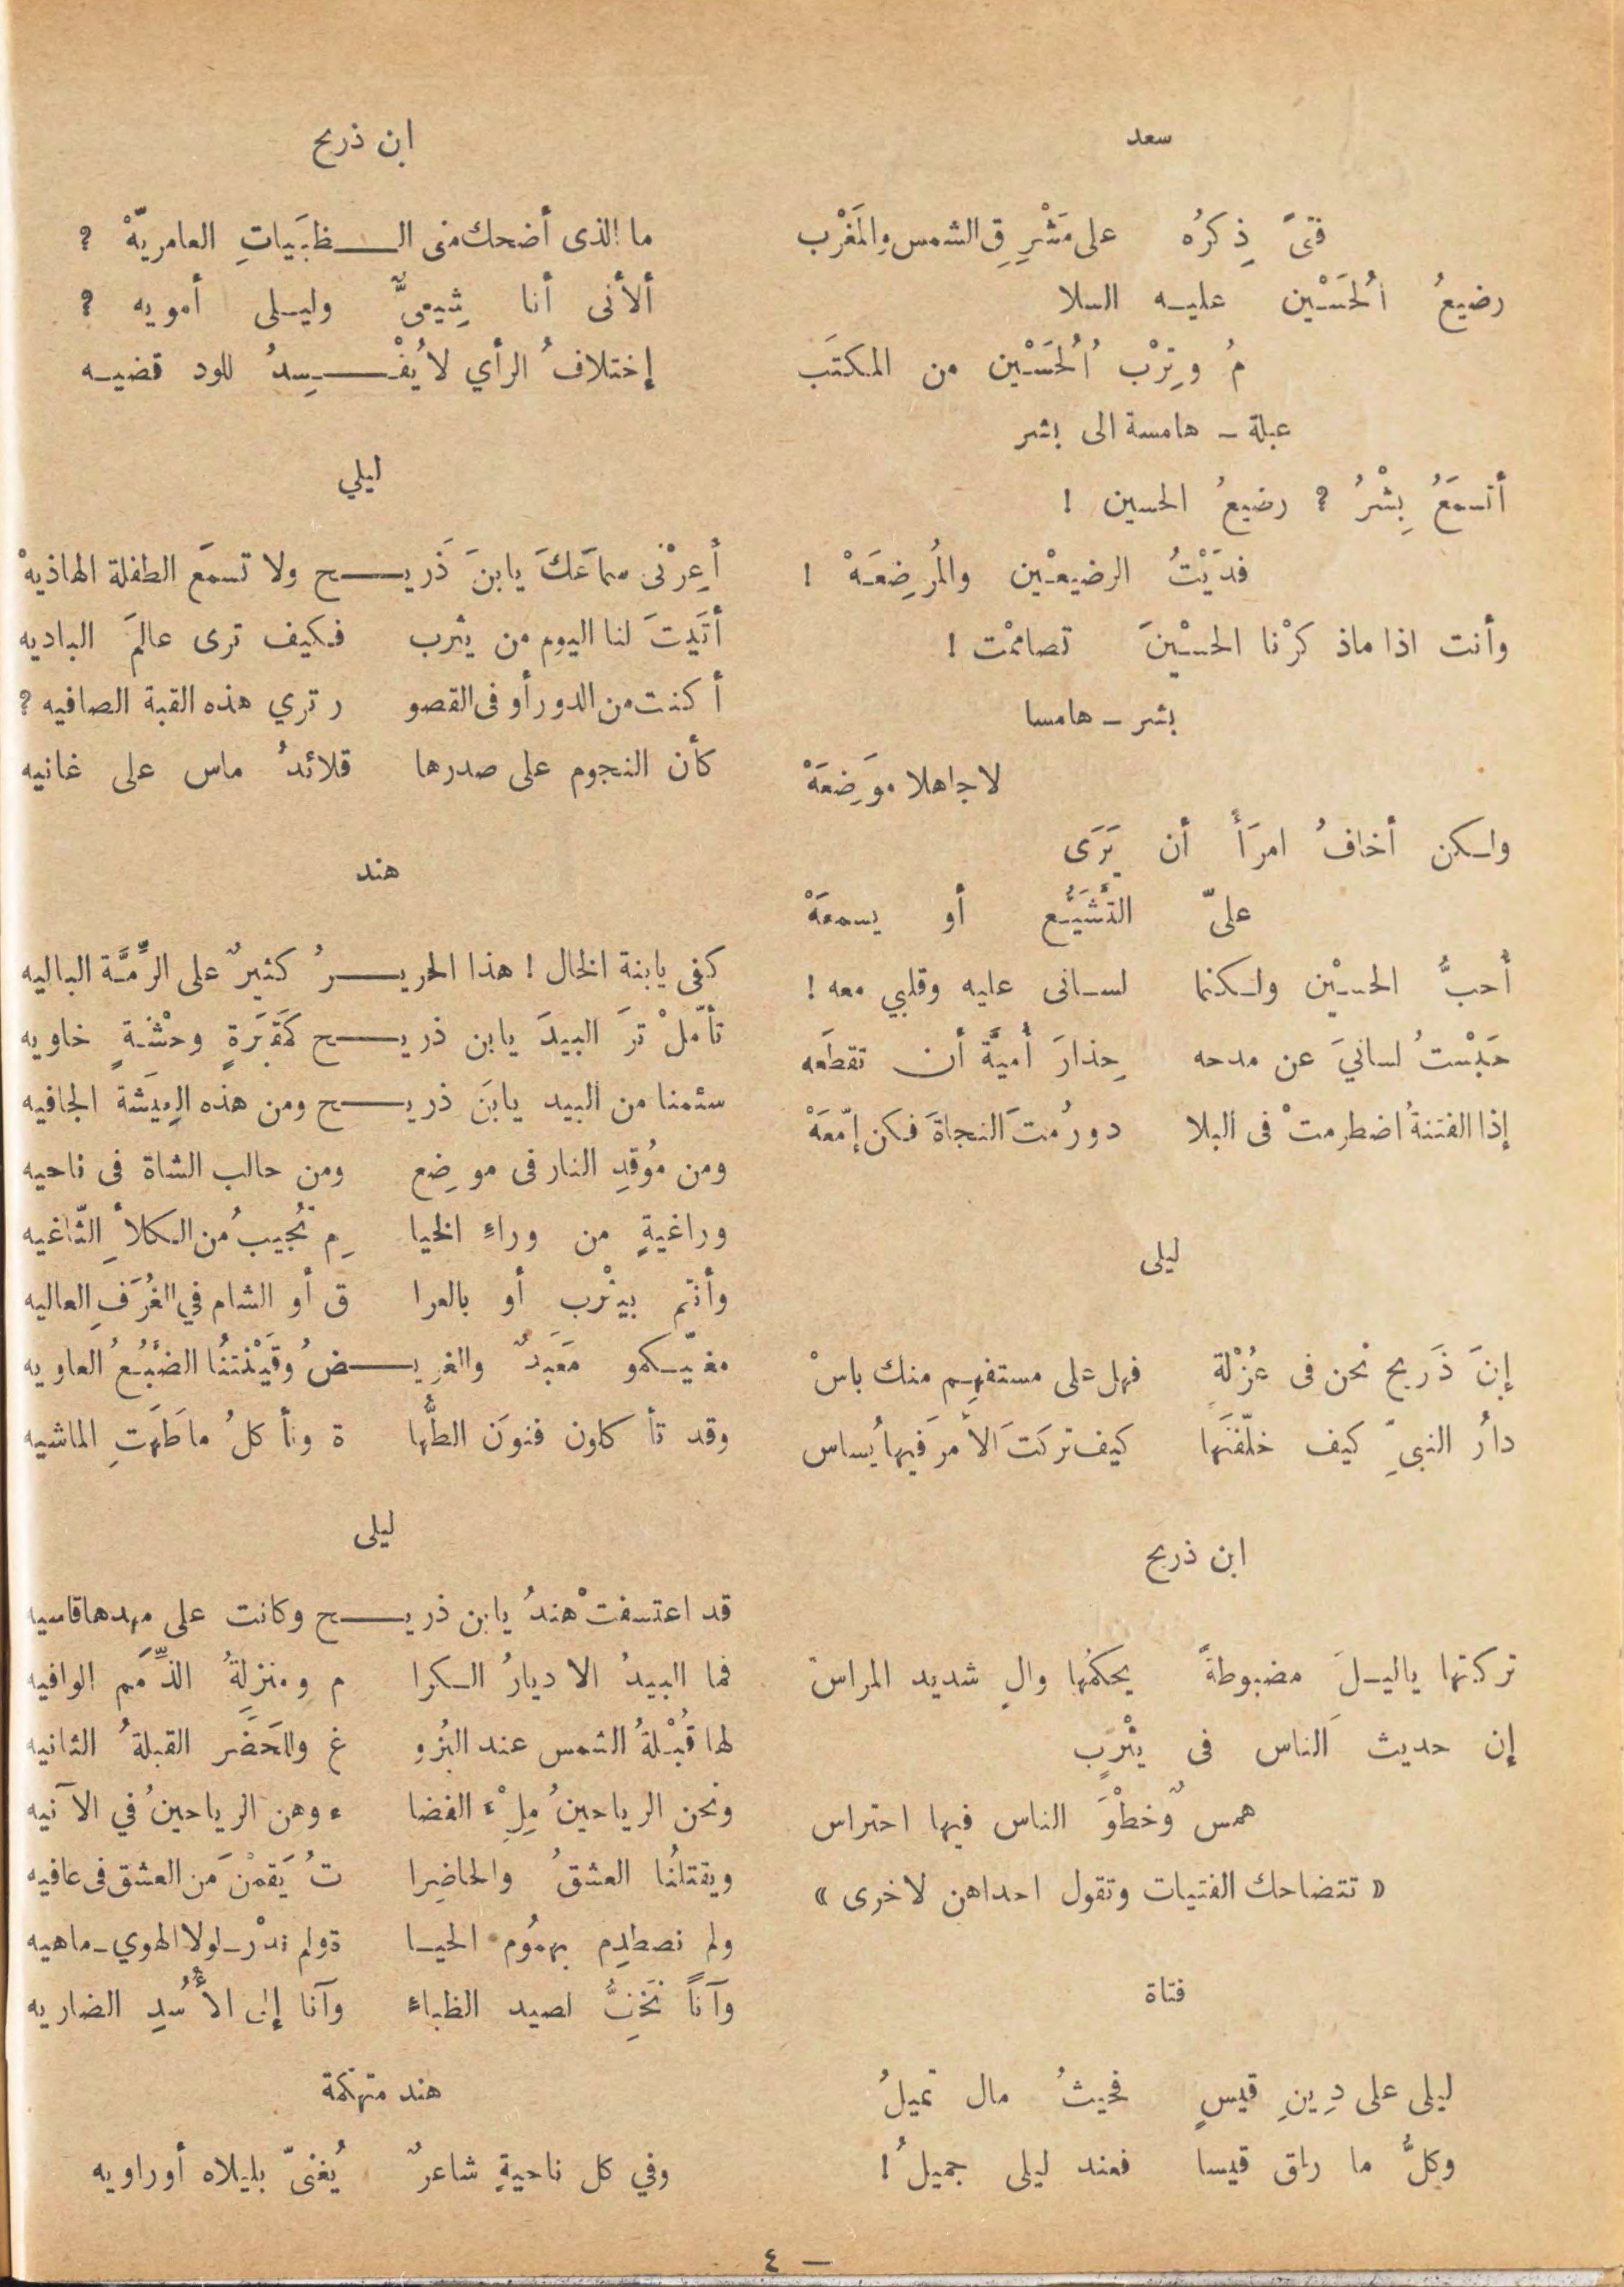 سعد
فتىً ذِكرُه على مَشْرِقِ الشمس والمَغْرْب
رضيعُ الُحَسَيْن عليـه السلا
مُ وتِرْب ُالُحَسَيْن من المكتَب
عبلة – هامسة الى بشر
أتسمَعُ بِشْرُ ؟ رضيعُ الحسين !
فدَيْتُ الرضيعيْن والمُرضِعَهْ !
وأنت اذا ماذكرْنا الحسيْنَ تصاممْت !
بشر – هامسا
لاجاهلا موَضِعَهْ
ولكن أخافُ امرَأً أن يَرَى
علىّ التَّشَيُّع أو يسمعَهْ
أُحبُّ الحسيْن ولكنما لسانى عليه وقلبي معه !
حَبْستُ لسانيَ عن مدحه حِذارَ أُميَّةَ أن تقطَعه
إذا الفتنةُ اضطرمتْ فى البلا دورُمتَ النجاةَ فكن إمّعَهْ
ليلى
إبنَ ذَريح نحن فى عُزْلةٍ فهل على مستفهِم منك باسْ
دارُ النبىِّ كيف خلّفتَها كيف تركتَ الأمرَ فيها يُساس
ابن ذريح
تركتها ياليـلَ مضبوطةً يحكمُها والٍ شديد المراسْ
إن حديث الناس فى يثْربٍ
همس وُخطْوَ الناس فيها احتراس
« تتضاحك الفتيات وتقول احداهن لاخرى »
فتاة
ليلى على دِينِ قيسٍ فحيثُ مال تميلُ
وكلُّ ما راق قيسا فعند ليلى جميلُ !
ابن ذريح
ما الذى أضحك منى الـــظبَيَاتِ العامريّهْ ؟
ألأنى أنا شِيعىٌّ وليـلى أمويه ؟
إختلافُ الرأي لايُفْـــسِدُ للود قضيـه
ليلي
أعِرْنى سماعَكَ يابنَ ذَريــح ولا تسمَع الطفلة الهاذيهْ
أتَيتَ لنا اليوم من يثرب فكيف ترى عالمَ الباديه
أكنت من الدور أو فى القصو ر تري هذه القبة الصافيه ؟
كأن النجوم على صدرها قلائدُ ماس على غانيه
هند
كفى يابنة الخال ! هذا الحريــرُ كثيرٌ على الرِّمَّة الباليه
تأمّلْ ترَ البيدَ يابن ذريــح كمَقبَرَةٍ وحْشةٍ خاويه
سئمنا من البيد يابنَ ذريــح ومن هذه العِيَشة الجافيه
ومن مُوقدِ النار فى موضِع ومن حالب الشاة فى ناحيه
وراغيةٍ من وراءِ الخيا مِ تُجيبُ من الكلأِ الثّاغيه
وأنتم بيثْرب أو بالعرا ق أو الشام في الغُرَفِ العاليه
مغنّيـكمو مَعبَدٌ والغرِيــضُ وقَيْنتنُا الضَّبُعُ العاويه
وقد تأكلون فنونَ الطُّها ة ونأكلُ ماطَهَتِ الماشيه
ليلى
قد اعتسفتْ هندُ يابن ذريــح وكانت على مهدها قاسيه
فما البيدُ الا ديارُ الـكرا م ومنزلةُ الذِّمَم الوافيه
لها قُبْلةُ الشمس عند البُزو غ وللحَضَر القبلةُ الثانيه
ونحن الرياحينُ مِلْءَ الفضا ء وهن الرياحينُ في الآنيه
ويقتلنُا العشقُ والحاضِرا تُ يَقمْنَ من العشق فى عافيه
ولم نصطدِم بهمُوم الحيـا ةولم ندْر–لولا الهوي–ماهيه
وآناً نَخِفُّ لصيد الظباء وآنا إلى الأُسدِ الضاريه
هند متهكمة
وفي كل ناحيةٍ شاعرٌ يُغنىّ بليلاه أوراويه
– ٤